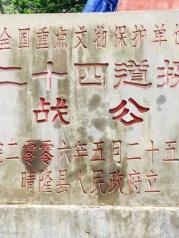 全国重点文物保护单
二十四道拐
战公
二零零六年五月二十五
晴隆县人民政府立